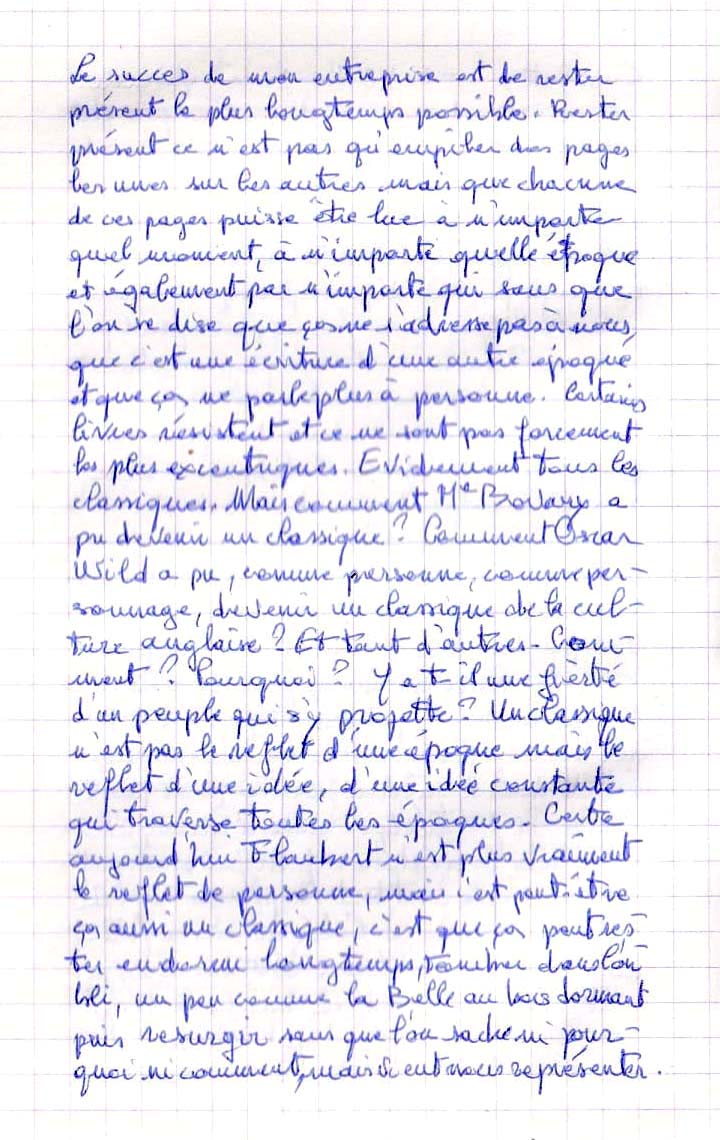 Le succes de mon entreprise est de rester
présent le plus longtemps possible. Rester
présent ce n'est pas qu'empiler des pages
les unes sur les autres mais que chacune
de ces pages puisse être lue à n'importe
quel moment, à n'importe quelle époque
et également par n'importe qui sans que
l'on se dise que ça ne s'adresse pas à nous,
que c'est une écriture d'une autre époque
et que ça ne parle plus à personne. Certains
livres résistent et ce ne sont pas forcement
les plus excentriques. Evidemment tous les
classiques. Mais comment Me Bovary a
pu devenir un classique ? Comment Oscar
Wild a pu, comme personne, comme per-
sonnage, devenir un classique de la cul-
ture anglaise ? Et tant d'autres. Com-
ment ? Pourquoi ? Y a t-il une fierté
d'un peuple qui s'y projette ? Un classique
n'est pas le reflet d'une époque mais le
reflet d'une idée, d'une idée constante
qui traverse toutes les époques. Certe
aujourd'hui Flaubert n'est plus vraiment
le reflet de personne, mais c'est peut-être
ça aussi un classique, c'est que ça peut res-
ter endormi longtemps, tomber dans l'ou
bli, un peu comme la Belle au bois dormant
puis resurgir sans que l'on sache ni pour-
quoi ni comment, mais vient nous représenter.